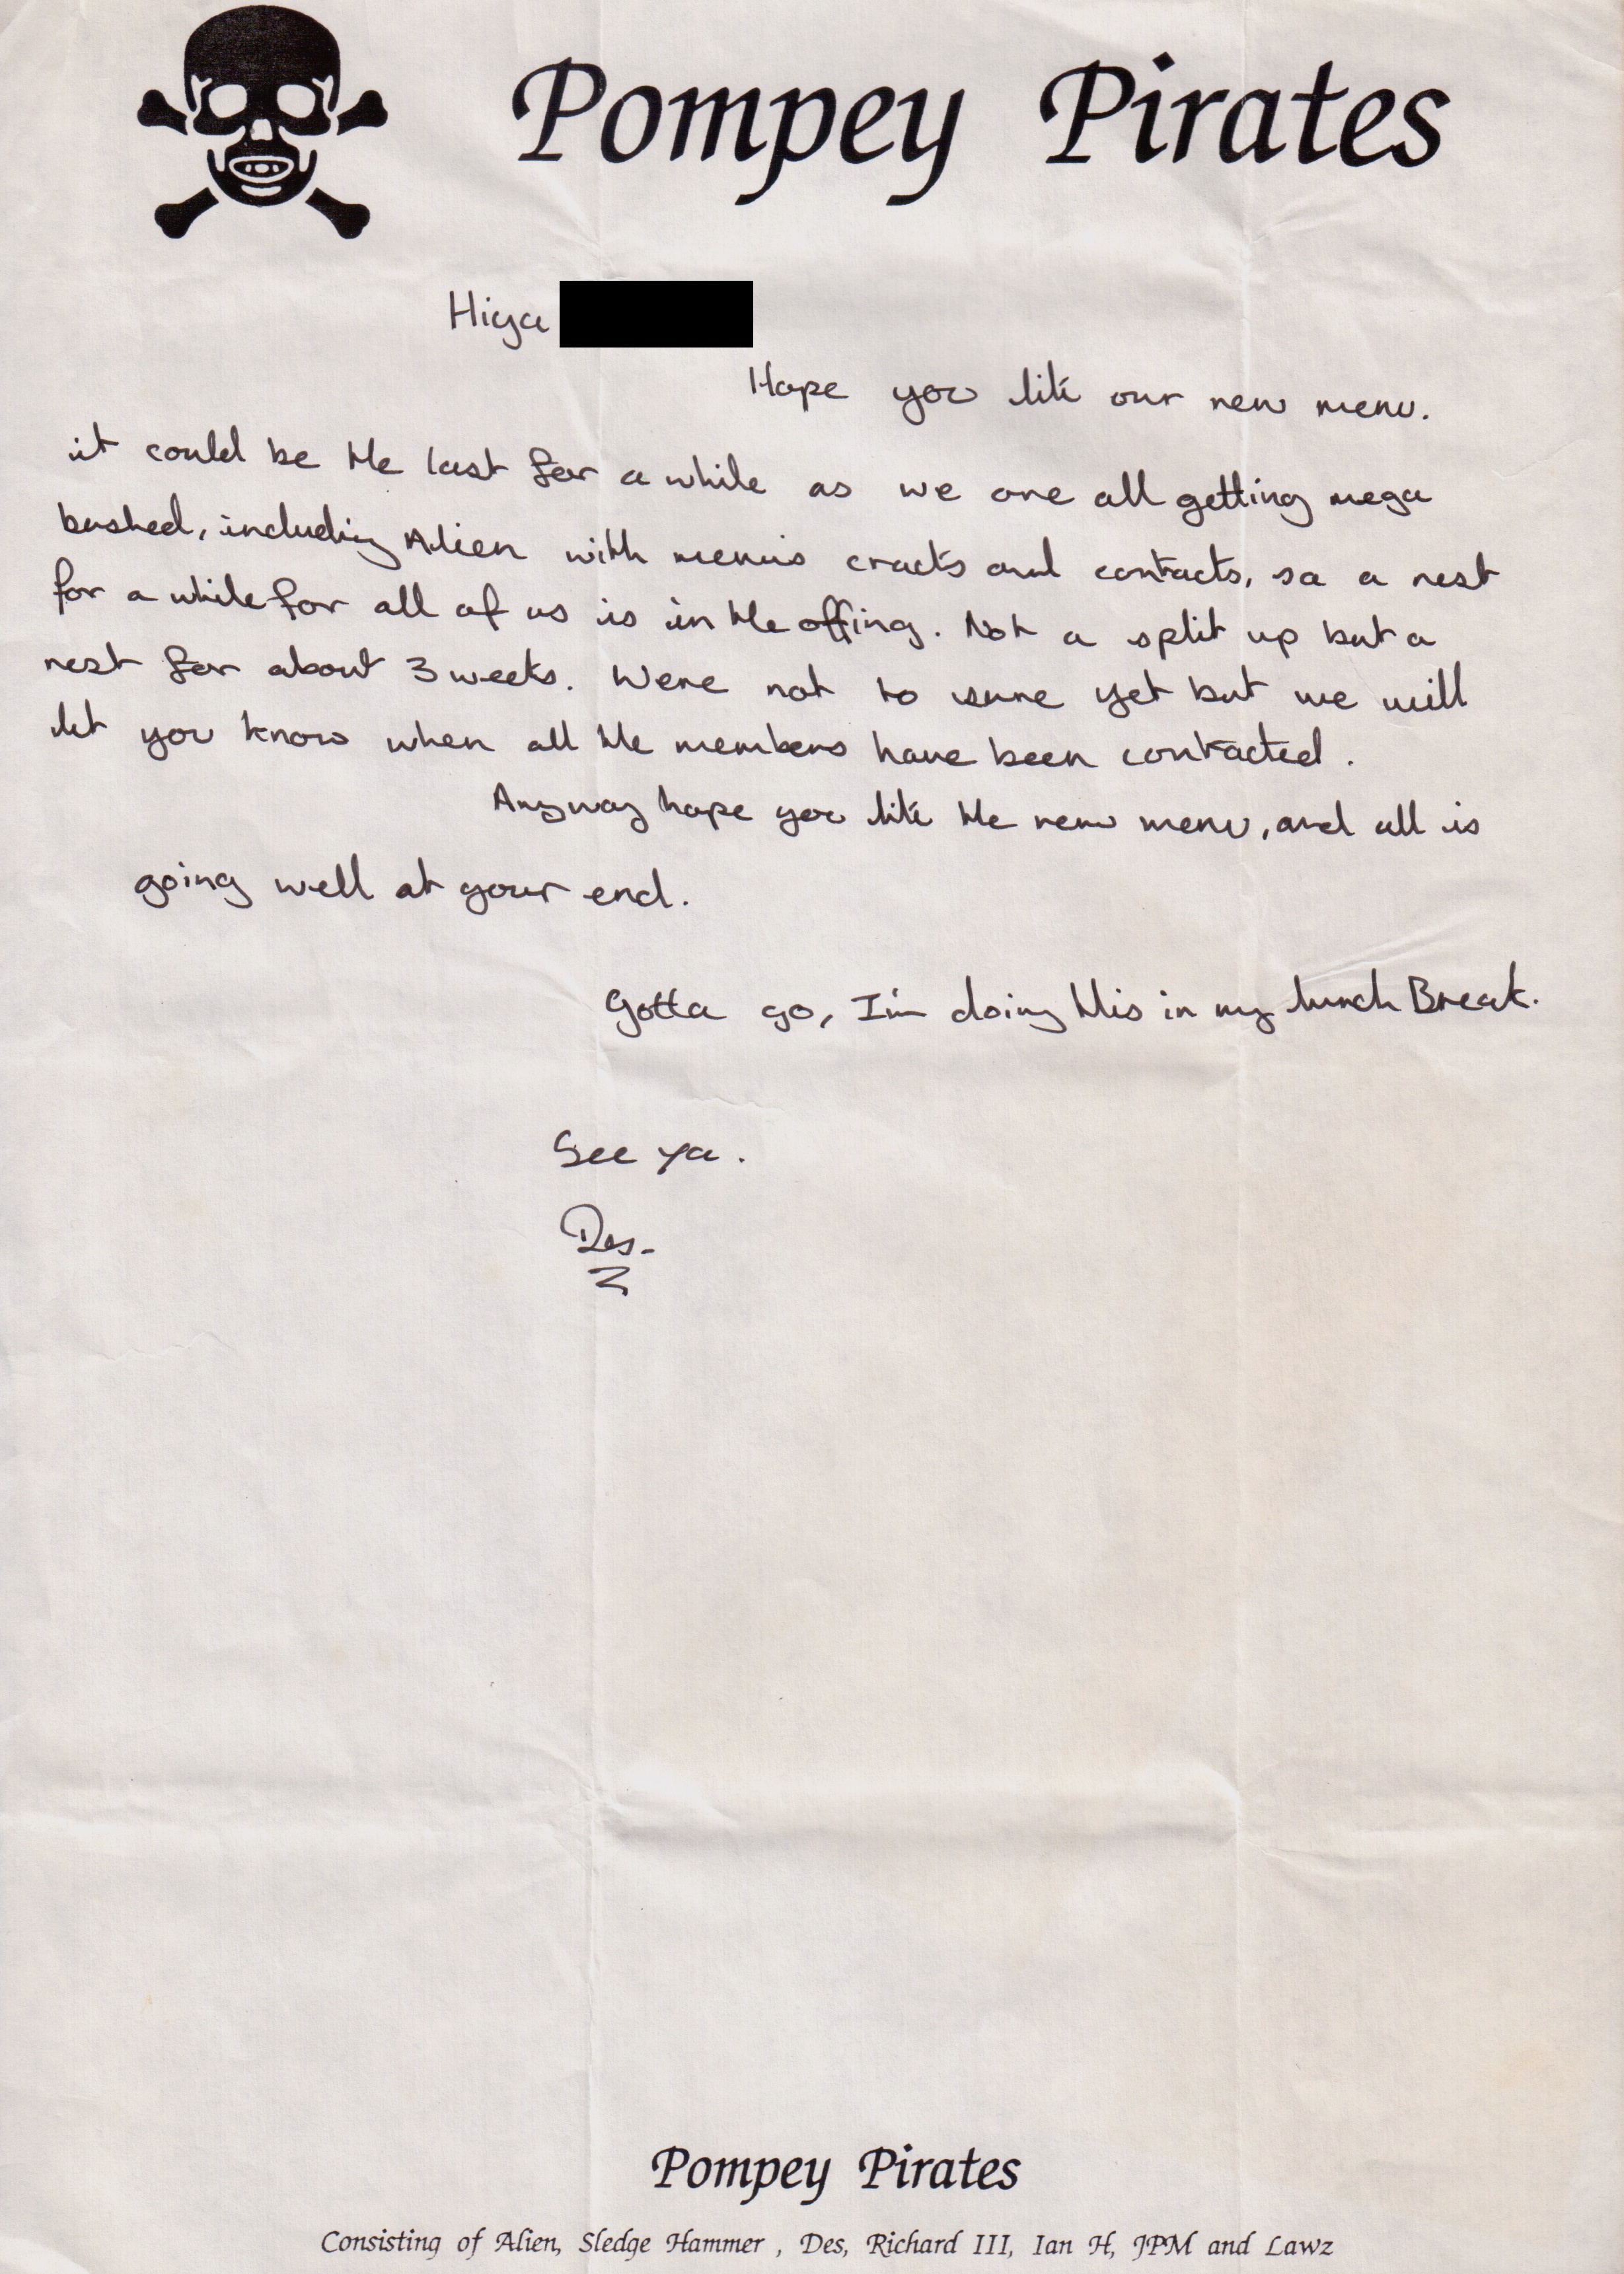 Pompey Pirates
Hiya
Hope you like our new menu.
it could be the last for a while as we are all getting mega
bushed, including Alien with menus cracks and contacts, so a rest
for a while for all of us is in the offing. Not a split up but a
rest for about 3 weeks. Were not to sure yet but we will
let you know when all the members have been contacted.
Anyway hope you like the new menu, and all is
going well at your end.
Gotta go, I'm doing this in my lunch Break.
See ya.
Des.
Pompey Pirates
Consisting of Alien, Sledge Hammer , Des, Richard III, Ian H, JPM and Lawz